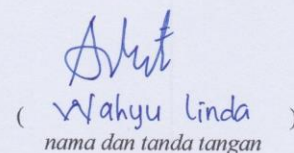 ( Wahyu Linda )
nama dan tanda tangan